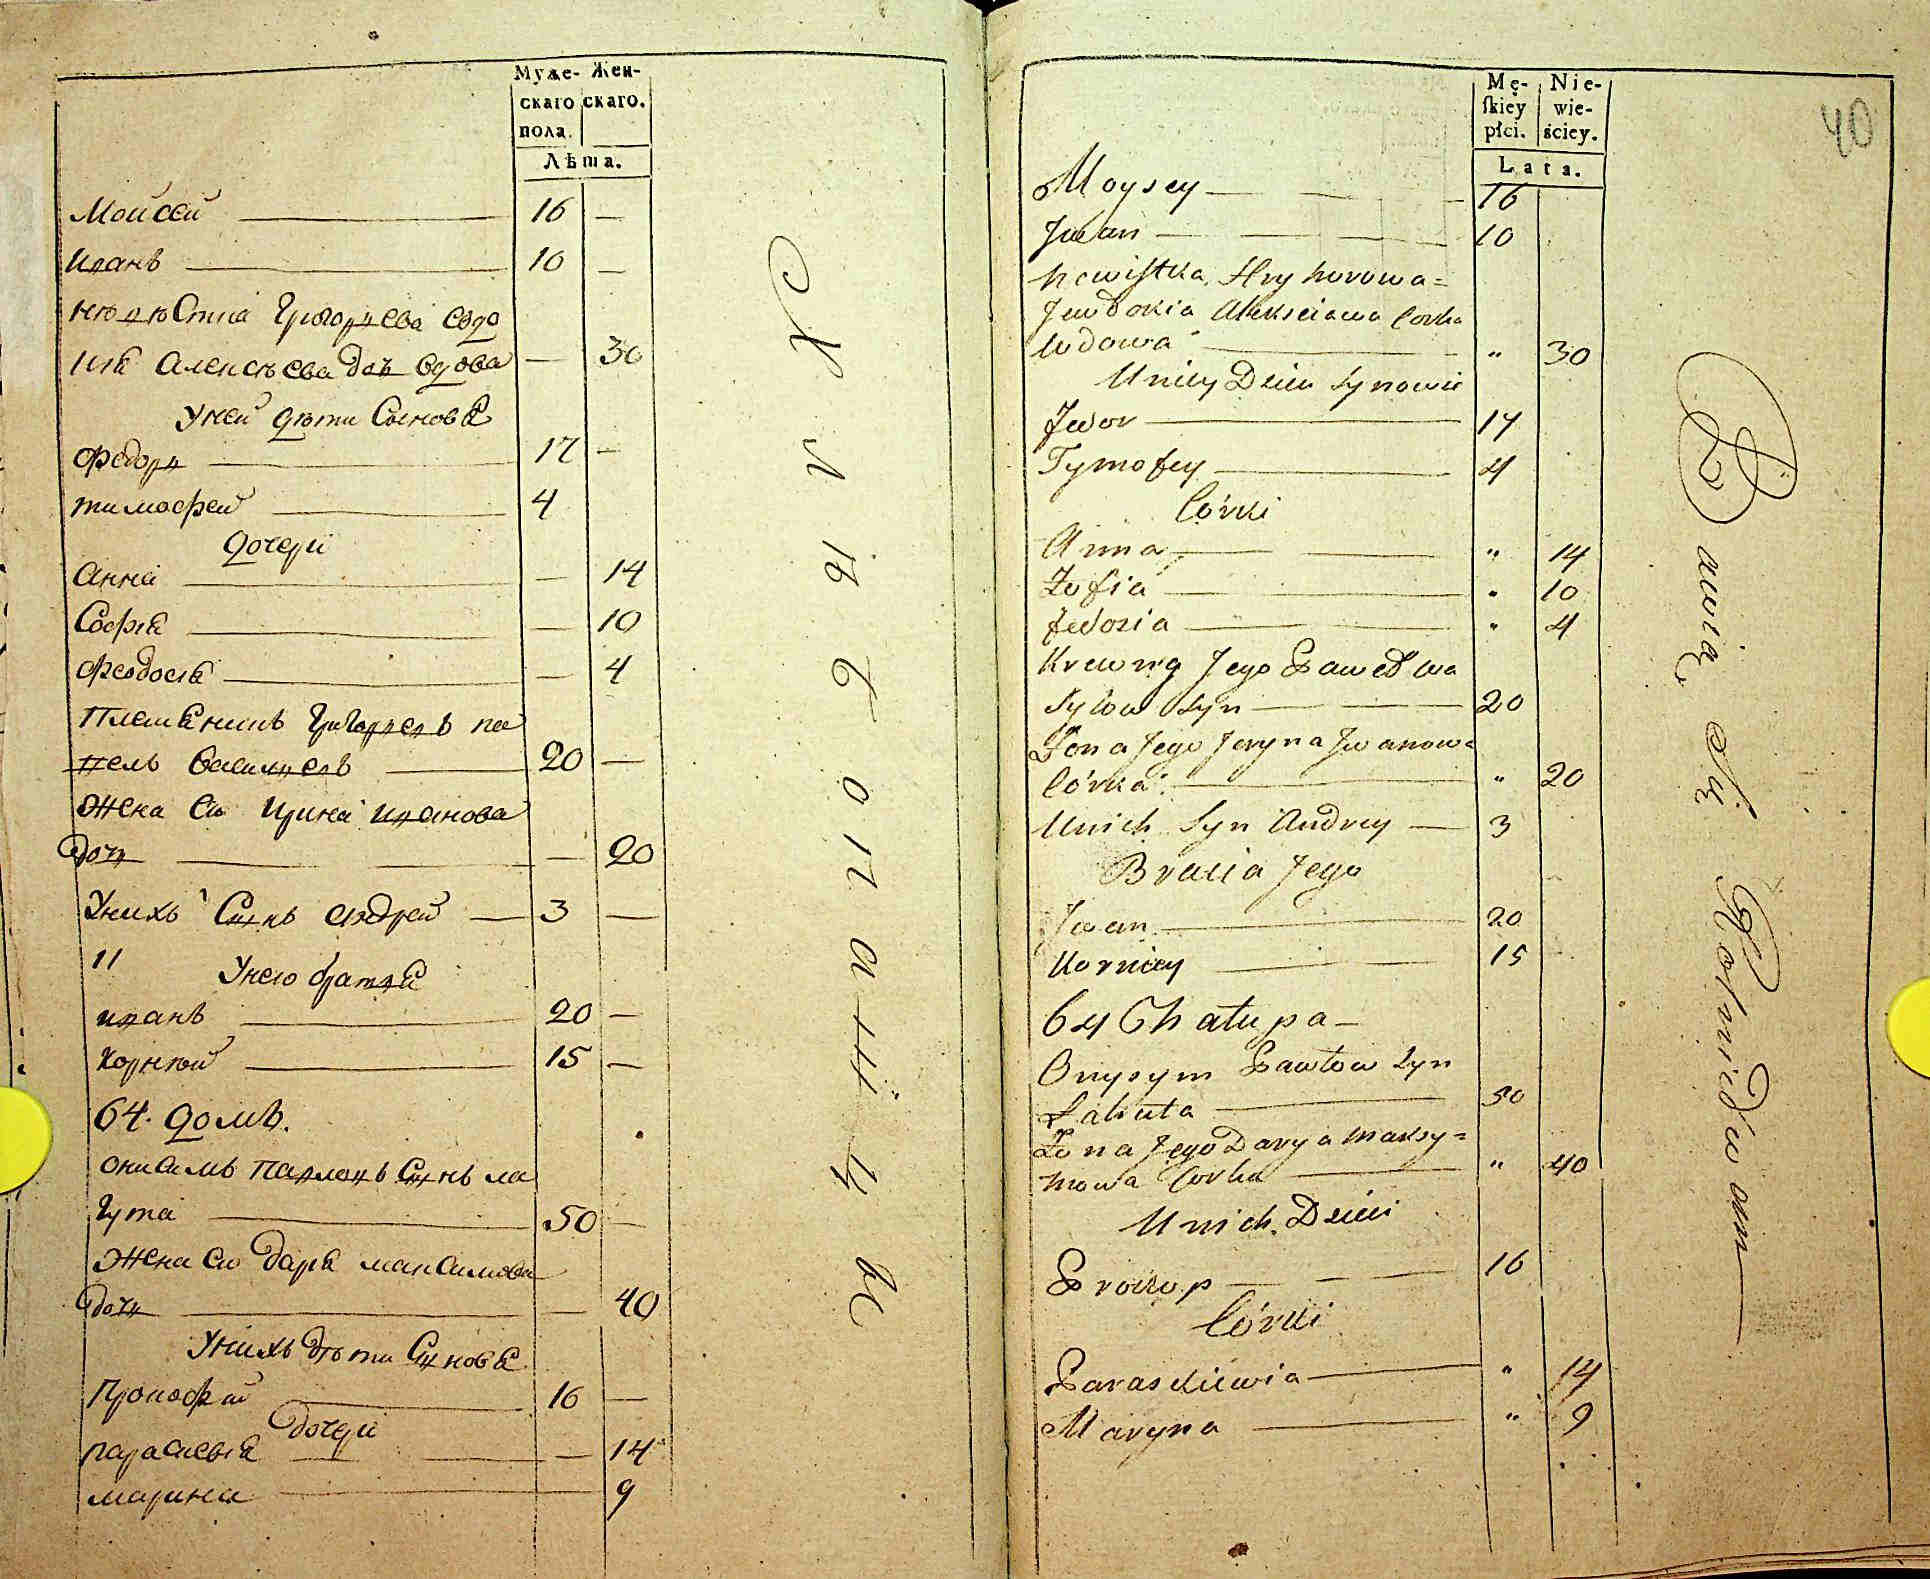 Муже- Жен-
скаго скаго.
пола.
Лѣта.
Моисей 16 —
Иванъ 10 —
невѣстка Григорьева Евдо
кия Алексѣева дочь вдова — 30
У ней дѣти Сыновья
Федоръ 17 —
тимофей 4
дочери
Анна — 14
Софья — 10
Феодосья — 4
племянникъ Григорьевъ па
велъ Васильевъ 20 —
жена ево Ирина Иванова
дочь — 20
У нихъ Сынъ Андрей — 3 —
11 У него братья
иванъ 20 —
Корней 15 —
64. домъ.
онисимъ павловъ Сынъ ла
гута 50 —
жена ево дарья максимова
дочь — 40
У нихъ дѣти Сыновья
Прокофей 16 —
дочери
парасковья — 14
марина 9
хлѣбопашцы
40
Mę- Nie-
ſkiey wie-
płci. ściey.
Lata.
Moysey 16
Jwan 10
Newiſtka Hryhorowa=
Jewdokia Alekseiawa Corka
Wdowa „ 30
U niey Dzieci Synowie
Fedor 17
Tymofey 4
Córki
Anna „ 14
Zofia „ 10
Fedosia „ 4
Krewny Jego Paweł wa
sylow Syn 20
Żona Jego Jeryna Jwanow=
Córka „ 20
U nich Syn Andrey — 3
Bracia Jego
Jwan 20
Korniey 15
64 Chałupa —
Onysym Pawłow Syn
Lahuta 50
Żona Jego Darya Maksy=
mowa Corka „ 40
U nich Dzieci
Prokop 16
Córki
Paraskiewia „ 14
Maryna „ 9
Bawią Się Rolnictwem